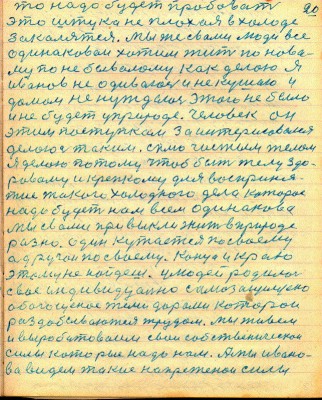 то надо будет пробовать 20
это штука не плохая в холоде
закалятся. Мы же свами люди все
одинаковаи хотим жит по нова-
му по не бывалому как делаю Я
иванов не одиваюся и не кушаю и
домом не нуждаюс этого не было
и не будет уприроде. Человек он
этим поступкам заинтерисовался
делаюс таким. сяло чистым телом
Я делаю потому чтоб быт телу здо-
ровому и крепкому для восприня-
тие такого холодного дела которое
надо будет нам всем одинакова
мы свами привыкли жит в природе
разно. один кутается по своему
а другой по своему. Конца и краю
этому не найдеш. улюдей родилос
свое индивидуално самозащитно
обогощеное теми дарами которои
раздобываются трудом. Мы живем
и выробатоваем свои собственои
силы которые надо нам. А мы ивано-
ва видем такие напряженои силы